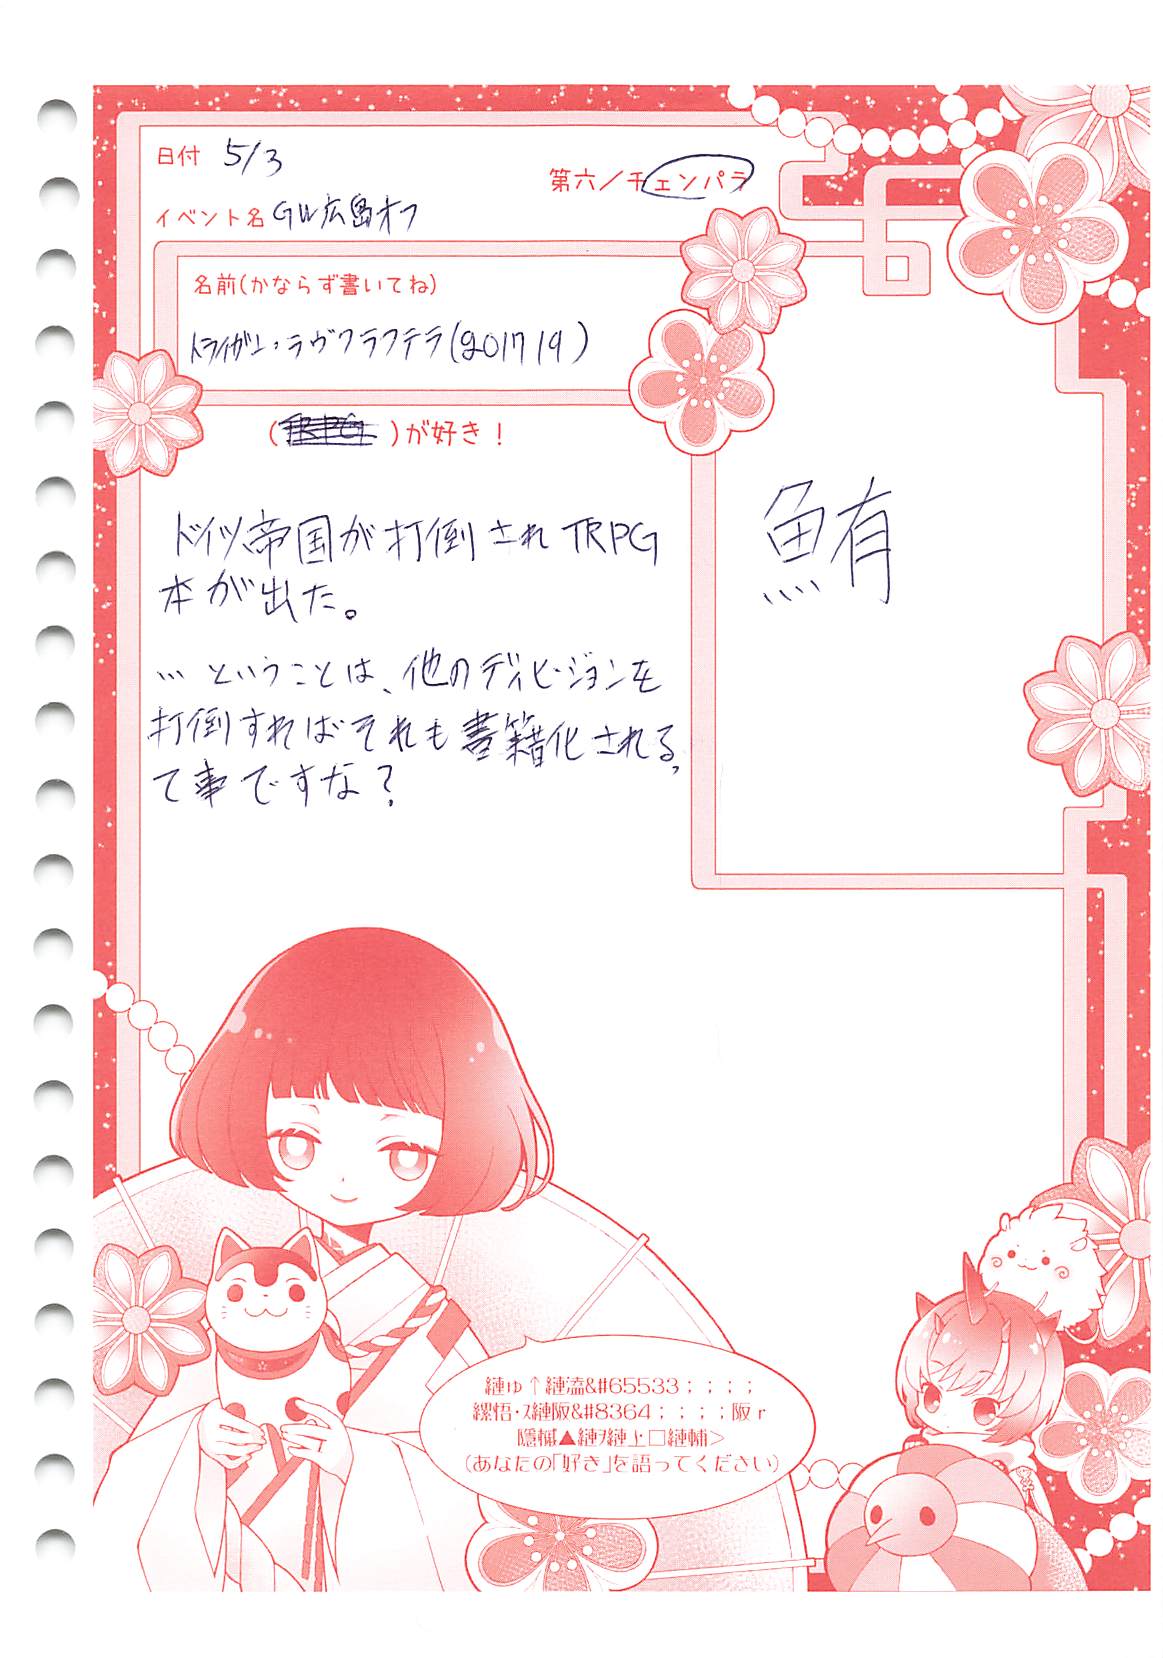 日付 5/3
第六/チェンパラ
イベント名 GW広島オフ
名前(かならず書いてね)
トライガン・ラヴクラフテラ(g01719)
( )が好き!
ドイツ帝国が打倒されTRPG
本が出た。
… ということは、他のディビジョンを
打倒すればそれも書籍化される
て事ですな?
鮪
縺ゅ↑縺溘&#65533;;;;;
縲悟・ス縺阪&#8364;;;;;阪r
隱槭▲縺ヲ縺上□縺輔>
(あなたの「好き」を語ってください)